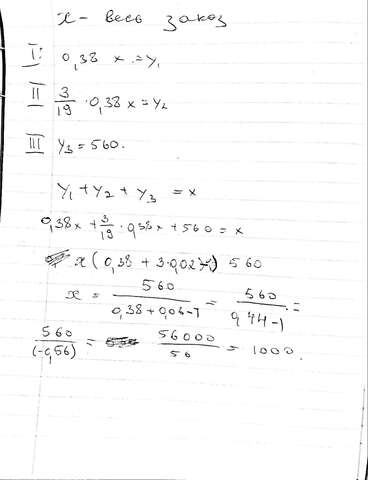 x - весь заказ
I: 0,38 x = y₁
II 3/19 · 0,38 x = y₂
III y₃ = 560.
y₁ + y₂ + y₃ = x
0,38x + 3/19 · 0,38x + 560 = x
x ( 0,38 + 3·0,02 ) 560
x = 560 / 0,38 + 0,06 - 1 = 560 / 0,44 - 1 =
560 / (-0,56) = 56000 / 56 = 1000.